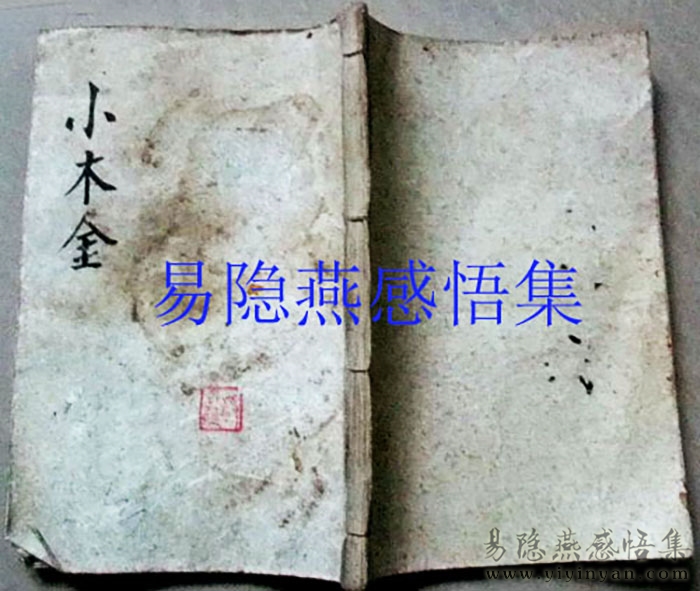 小木金
易隐燕感悟集
易隐燕感悟集
www.yiyinyan.com